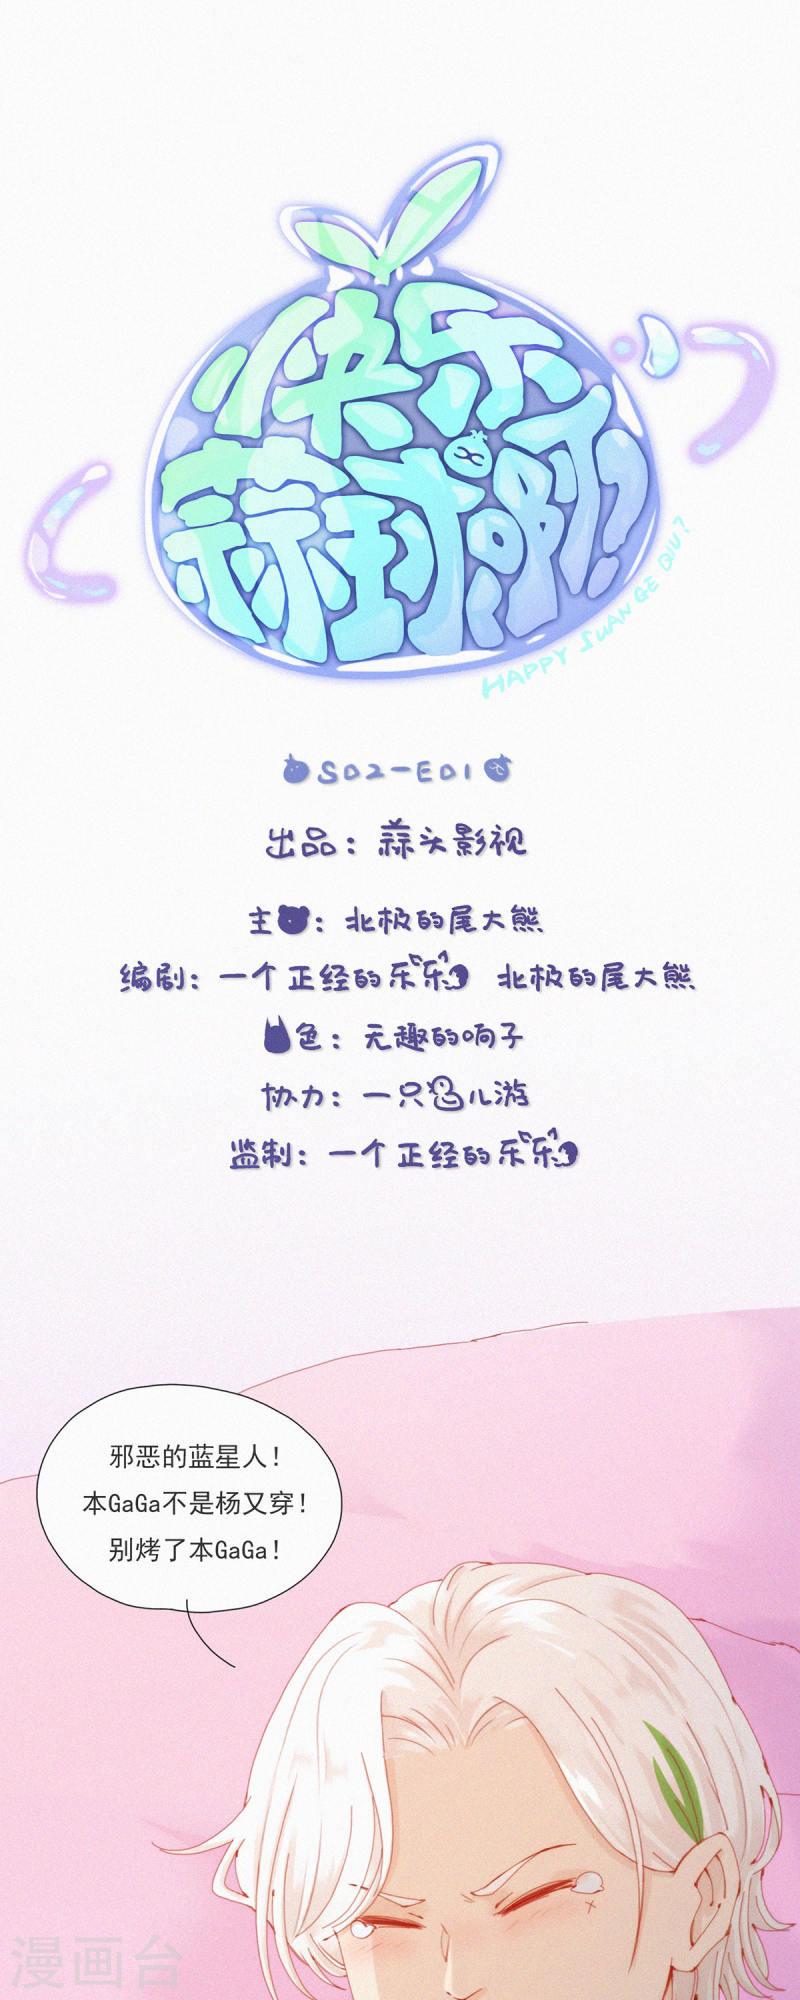 快乐
蒜球啊?!
HAPPY SUAN GE QIU?
S02-E01
出品：蒜头影视
主：北极的尾大熊
编剧：一个正经的乐乐 北极的尾大熊
色：无趣的响子
协力：一只鸟儿游
监制：一个正经的乐乐
邪恶的蓝星人!
本GaGa不是杨又穿!
别烤了本GaGa!
漫画台